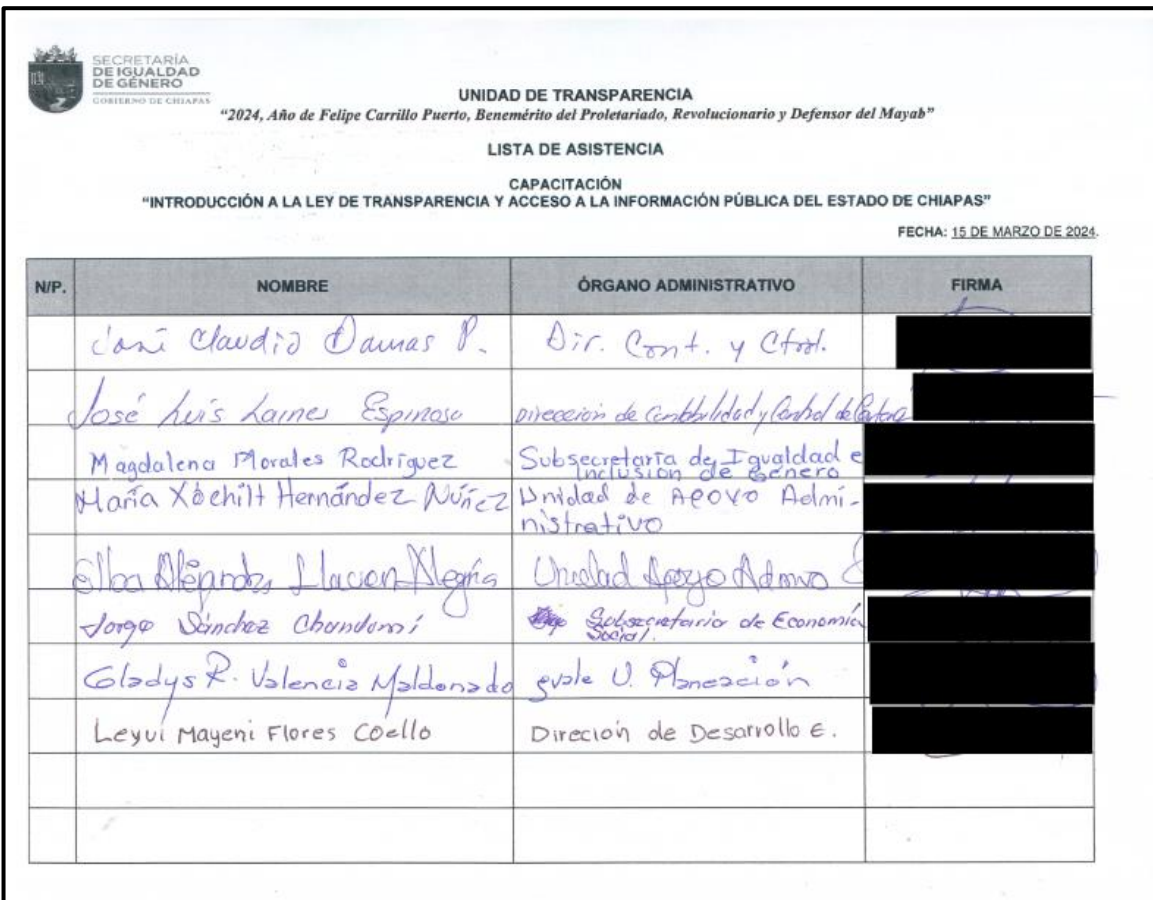 SECRETARÍA
DE IGUALDAD
DE GÉNERO
GOBIERNO DE CHIAPAS
UNIDAD DE TRANSPARENCIA
“2024, Año de Felipe Carrillo Puerto, Benemérito del Proletariado, Revolucionario y Defensor del Mayab”
LISTA DE ASISTENCIA
CAPACITACIÓN
“INTRODUCCIÓN A LA LEY DE TRANSPARENCIA Y ACCESO A LA INFORMACIÓN PÚBLICA DEL ESTADO DE CHIAPAS”
FECHA: 15 DE MARZO DE 2024.
N/P. NOMBRE ÓRGANO ADMINISTRATIVO FIRMA
José Claudio Damas P. Dir. Cont. y
José Luis Laines Espinosa Dirección de Contabilidad y Control de
Magdalena Morales Rodríguez Subsecretaría de Igualdad e
Inclusión de Género
María Xóchilt Hernández Núñez Unidad de Apoyo Admi-
nistrativo
Elba Alejandra Alegría Unidad Apoyo Admvo
Jorge Sánchez Chandomí Subsecretaria de Economía
Social.
Gladys R. Valencia Maldonado U. Planeación
Leyvi Mayeni Flores Coello Direción de Desarrollo E.